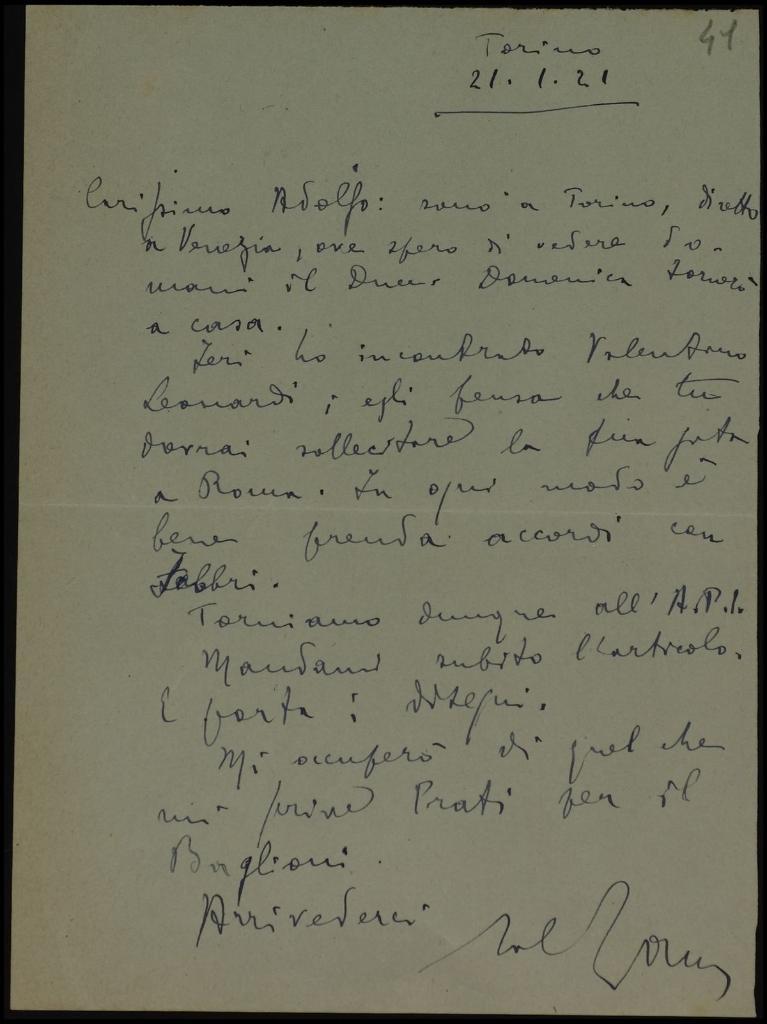 41
Torino
21. 1. 21
Carissimo Adolfo: sono a Torino, diretto
a Venezia, ove spero di vedere do-
mani il Duce. Domenica tornerò
a casa.
Ieri ho incontrato Valentino
Leonardi; egli pensa che tu
dovrai sollecitare la tua gita
a Roma. In ogni modo è
bene prenda accordi con
Fabbri.
Torniamo dunque all'A.P.I.
Mandami subito l'articolo.
E porta i disegni.
Mi occuperò di quel che
mi scrive Prati per il
Baglioni.
Arrivederci